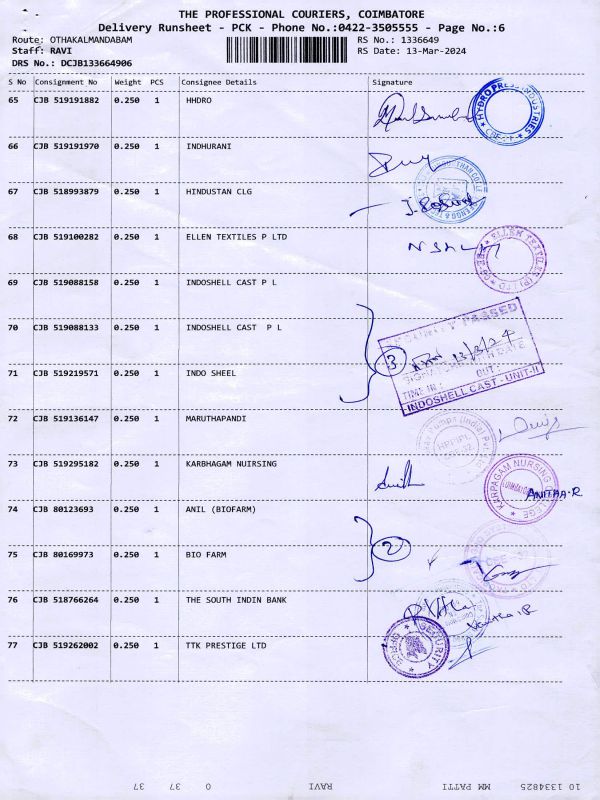 THE PROFESSIONAL COURIERS, COIMBATORE
Delivery Runsheet - PCK - Phone No.:0422-3505555 - Page No.:6
Route: OTHAKALMANDABAM RS No.: 1336649
Staff: RAVI RS Date: 13-Mar-2024
DRS No.: DCJB133664906
S No Consignment No Weight PCS Consignee Details Signature
65 CJB 519191882 0.250 1 HHDRO
HYDRO PRESS INDUSTRIES
66 CJB 519191970 0.250 1 INDHURANI
67 CJB 518993879 0.250 1 HINDUSTAN CLG
68 CJB 519100282 0.250 1 ELLEN TEXTILES P LTD
ELLEN TEXTILES (P) LTD
69 CJB 519088158 0.250 1 INDOSHELL CAST P L
70 CJB 519088133 0.250 1 INDOSHELL CAST P L
SECURITY PASSED
13/3/24
3
DATE
TIME IN: OUT:
INDOSHELL CAST - UNIT-II
71 CJB 519219571 0.250 1 INDO SHEEL
72 CJB 519136147 0.250 1 MARUTHAPANDI
73 CJB 519295182 0.250 1 KARBHAGAM NUIRSING
KARPAGAM NURSING COLLEGE
ANITHA.R
74 CJB 80123693 0.250 1 ANIL (BIOFARM)
2
75 CJB 80169973 0.250 1 BIO FARM
76 CJB 518766264 0.250 1 THE SOUTH INDIN BANK
77 CJB 519262002 0.250 1 TTK PRESTIGE LTD
SECURITY OFFICE
10 1334825 MM PATTI RAVI 0 37 37